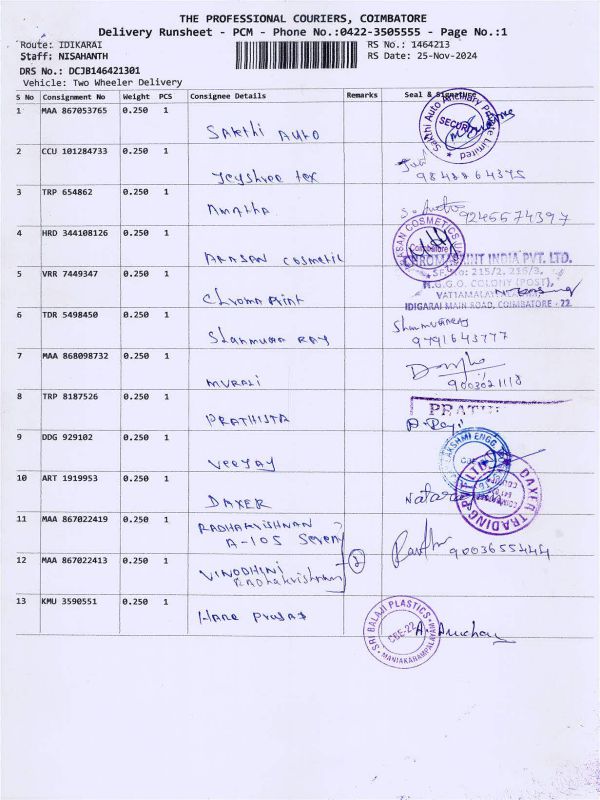 THE PROFESSIONAL COURIERS, COIMBATORE
Delivery Runsheet - PCM - Phone No.:0422-3505555 - Page No.:1
Route: IDIKARAI
RS No.: 1464213
Staff: NISAHANTH
RS Date: 25-Nov-2024
DRS No.: DCJB146421301
Vehicle: Two Wheeler Delivery
S No Consignment No Weight PCS Consignee Details Remarks Seal & Signature
1 MAA 867053765 0.250 1
Sakthi Auto
Sakthi Auto Ancillary Private Limited
SECURITY
2 CCU 101284733 0.250 1
Jeyshree tex
9848864375
3 TRP 654862 0.250 1
Amatha
9246574397
4 HRD 344108126 0.250 1
ARASAN cosmetic
ARASAN COSMETICS
Coimbatore
5 VRR 7449347 0.250 1
Chroma Print
CHROMAPRINT INDIA PVT. LTD.
S.F. No: 215/2, 216/3,
N.G.G.O. COLONY (POST),
IDIGARAI MAIN ROAD, COIMBATORE - 22.
6 TDR 5498450 0.250 1
Shanmuga Ray
9791643777
7 MAA 868098732 0.250 1
MURALI
9003021118
8 TRP 8187526 0.250 1
PRATHISTA
PRATHI
9 DDG 929102 0.250 1
Veejay
LAKSHMI ENGG
10 ART 1919953 0.250 1
DAXER
DAXER TRADING PVT LTD
11 MAA 867022419 0.250 1
RADHAKRISHNAN
A-105 Seven
12 MAA 867022413 0.250 1
VINODHINI
Radhakrishnan
2
9003655444
13 KMU 3590551 0.250 1
Hare Prasad
SRI BALAJI PLASTICS
CBE-22
MANIAKARAMPALAYAM